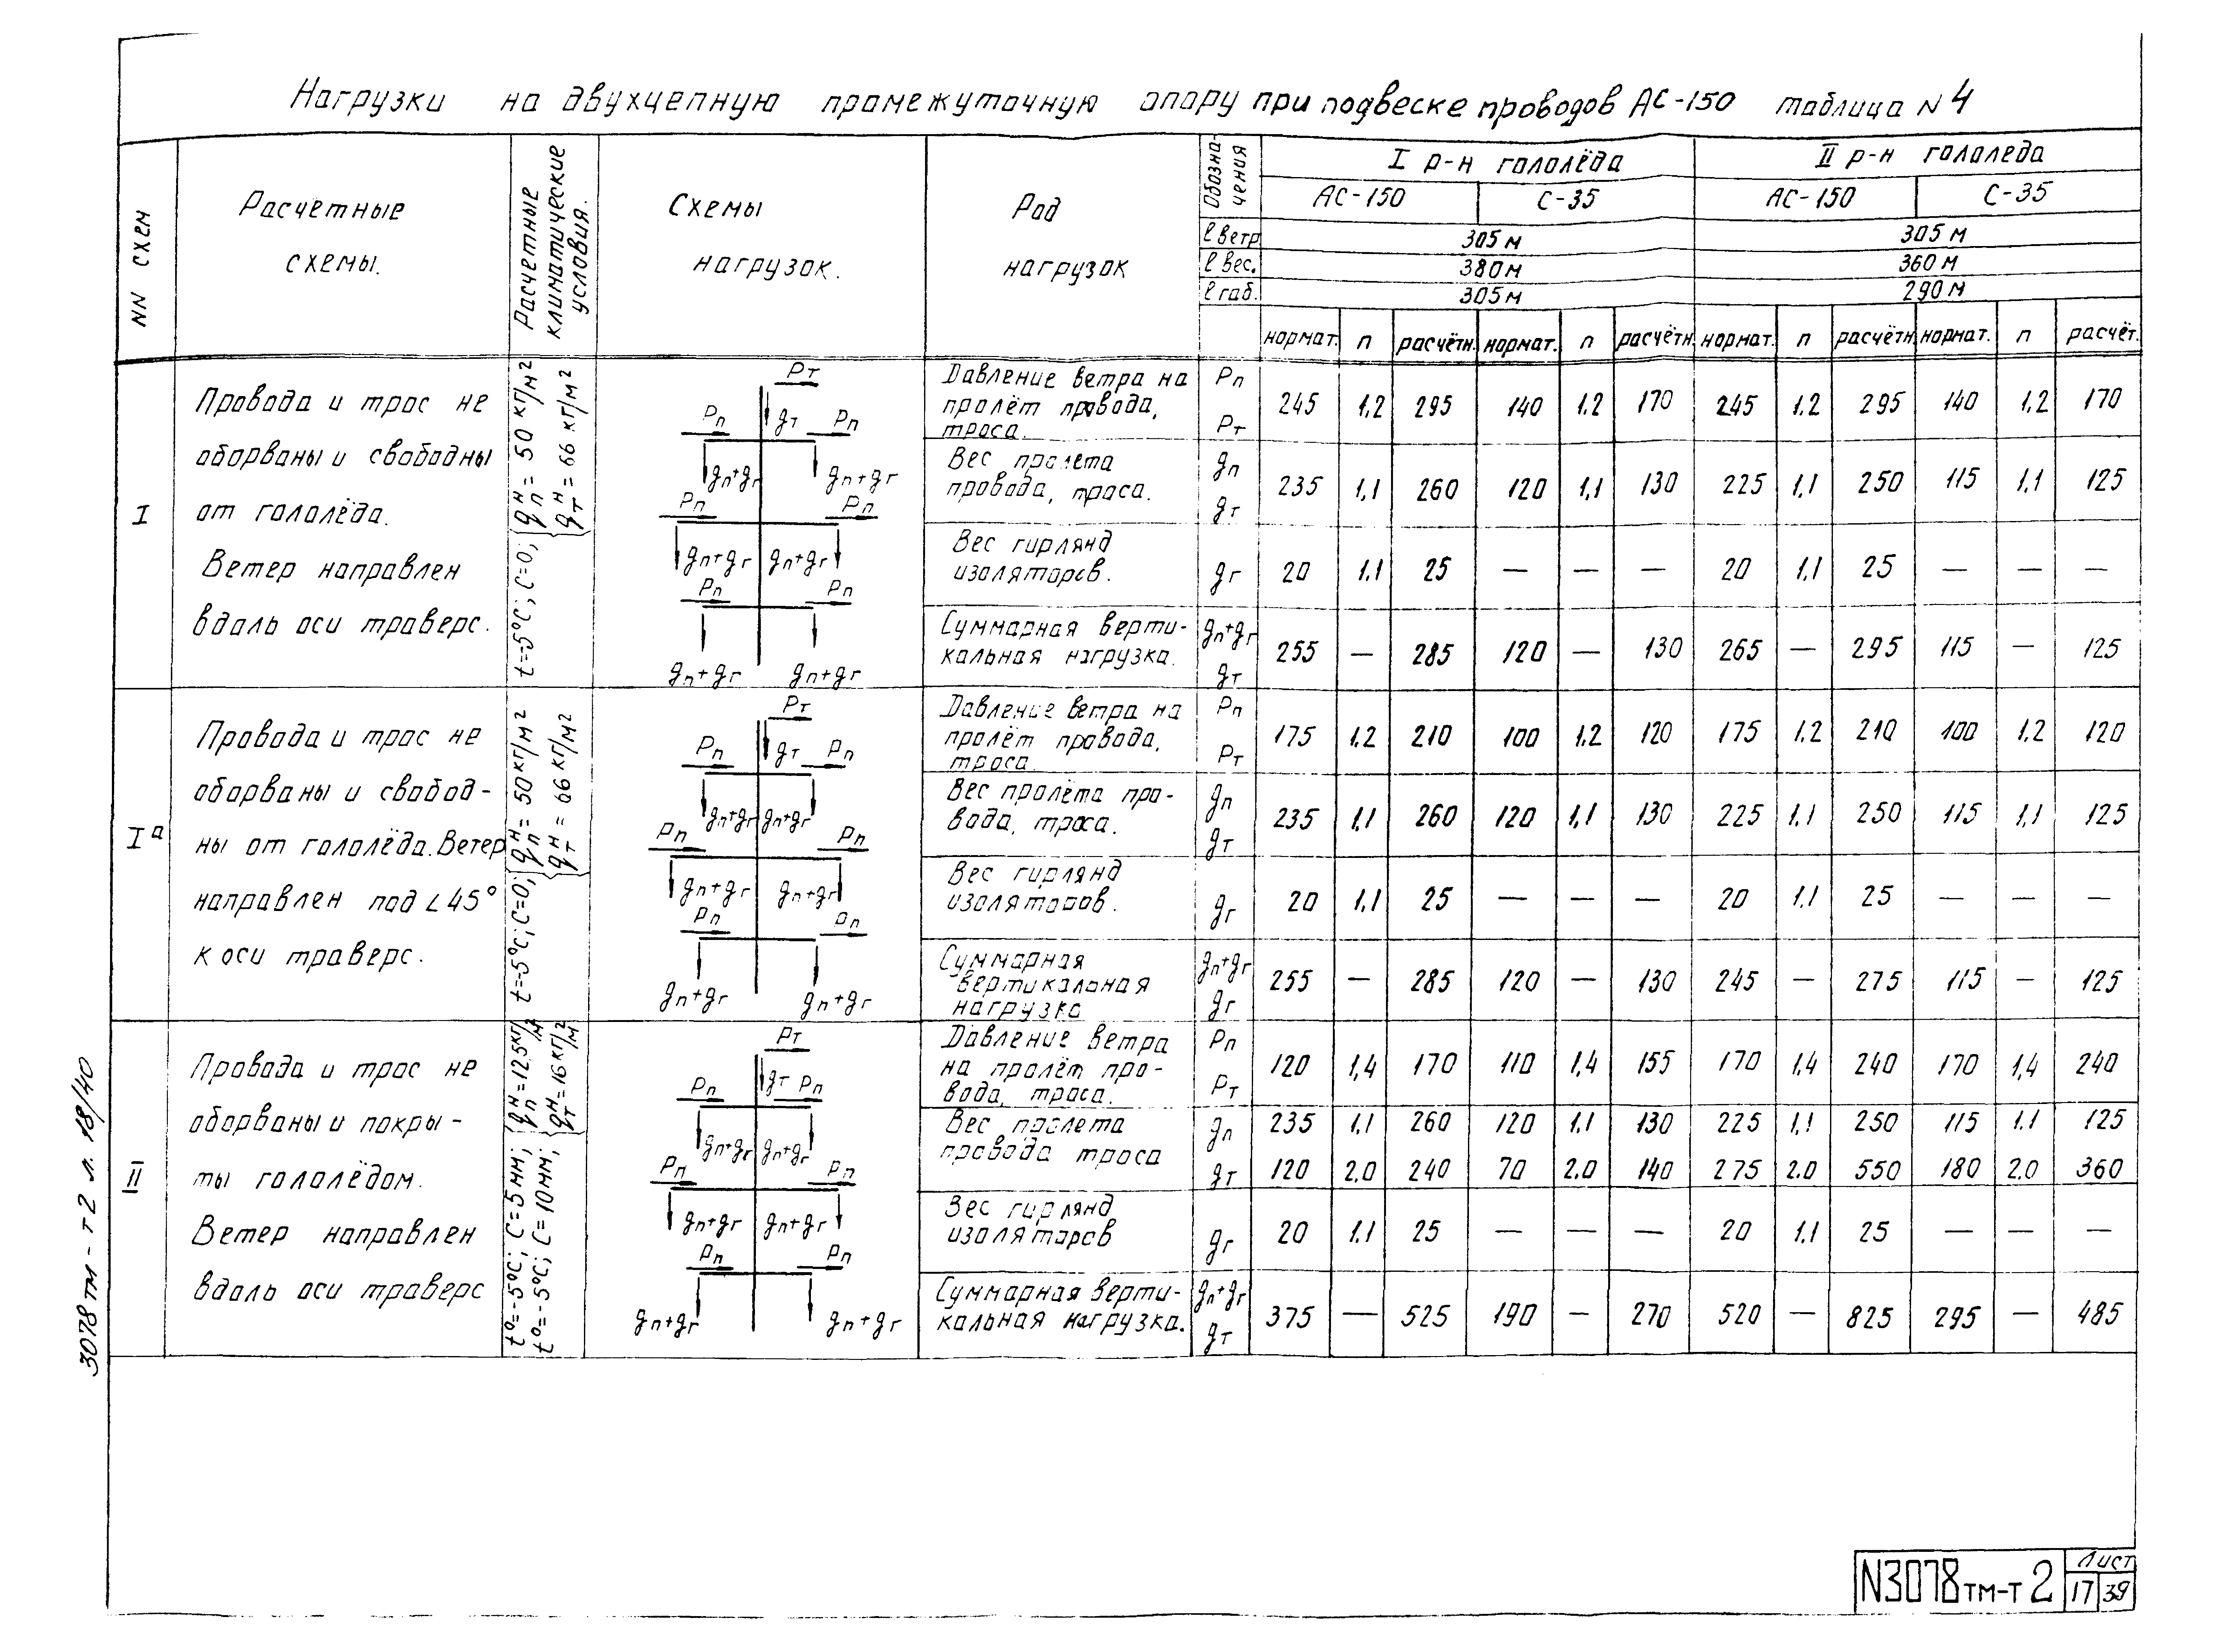 Нагрузки на двухцепную промежуточную опору при подвеске проводов АС-150 таблица N 4
NN схем
Расчетные
схемы.
Расчетные
климатические
условия.
Схемы
нагрузок.
Род
нагрузок
Обозна-
чения
I р-н гололёда
II р-н гололеда
АС-150 С-35 АС-150 С-35
l ветр 305 м 305 м
l вес. 380 м 360 м
l габ. 305 м 290 м
нормат. п расчётн. нормат. п расчётн нормат. п расчётн нормат. п расчёт.
I
Провода и трос не
оборваны и свободны
от гололёда.
Ветер направлен
вдоль оси траверс.
t=-5°C; C=0; { qпᴴ = 50 кг/м²
qтᴴ = 66 кг/м²
Рт
Рп gт Рп
gп+gг gп+gг
Рп Рп
gп+gг gп+gг
Рп Рп
gп+gг gп+gг
Давление ветра на
пролёт провода,
троса.
Рп
Рт
245 1.2 295 140 1.2 170 245 1.2 295 140 1.2 170
Вес пролета
провода, троса.
gп
gт
235 1,1 260 120 1,1 130 225 1,1 250 115 1.1 125
Вес гирлянд
изоляторов.
gг 20 1.1 25 — — — 20 1,1 25 — — —
Суммарная верти-
кальная нагрузка.
gп+gг
gт
255 — 285 120 — 130 265 — 295 115 — 125
Iа
Провода и трос не
оборваны и свобод-
ны от гололёда. Ветер
направлен под ∠45°
к оси траверс.
t=-5°C; C=0; { qпᴴ = 50 кг/м²
qтᴴ = 66 кг/м²
Рт
Рп gт Рп
gп+gг gп+gг
Рп Рп
gп+gг gп+gг
Рп Рп
gп+gг gп+gг
Давление ветра на
пролёт провода,
троса.
Рп
Рт
175 1.2 210 100 1.2 120 175 1.2 210 100 1.2 120
Вес пролёта про-
вода, троса.
gп
gт
235 1,1 260 120 1,1 130 225 1,1 250 115 1,1 125
Вес гирлянд
изоляторов.
gг 20 1,1 25 — — — 20 1,1 25 — — —
Суммарная
вертикальная
нагрузка
gп+gг
gг
255 — 285 120 — 130 245 — 275 115 — 125
II
Провода и трос не
оборваны и покры-
ты гололёдом.
Ветер направлен
вдоль оси траверс
t°=-5°C; C=5мм; { qпᴴ = 12.5 кг/м²
t°=-5°C; C=10мм; qтᴴ = 16 кг/м²
Рт
Рп gт Рп
gп+gг gп+gг
Рп Рп
gп+gг gп+gг
Рп Рп
gп+gг gп+gг
Давление ветра
на пролёт про-
вода, троса.
Рп
Рт
120 1,4 170 110 1,4 155 170 1,4 240 170 1,4 240
Вес пролета
провода троса
gп 235 1,1 260 120 1.1 130 225 1,1 250 115 1.1 125
gт 120 2.0 240 70 2.0 140 275 2.0 550 180 2.0 360
Вес гирлянд
изоляторов
gг 20 1.1 25 — — — 20 1,1 25 — — —
Суммарная верти-
кальная нагрузка.
gп+gг
gт
375 — 525 190 — 270 520 — 825 295 — 485
3078 тм - т 2 л. 18/40
N3078тм-т 2
Лист
17 39